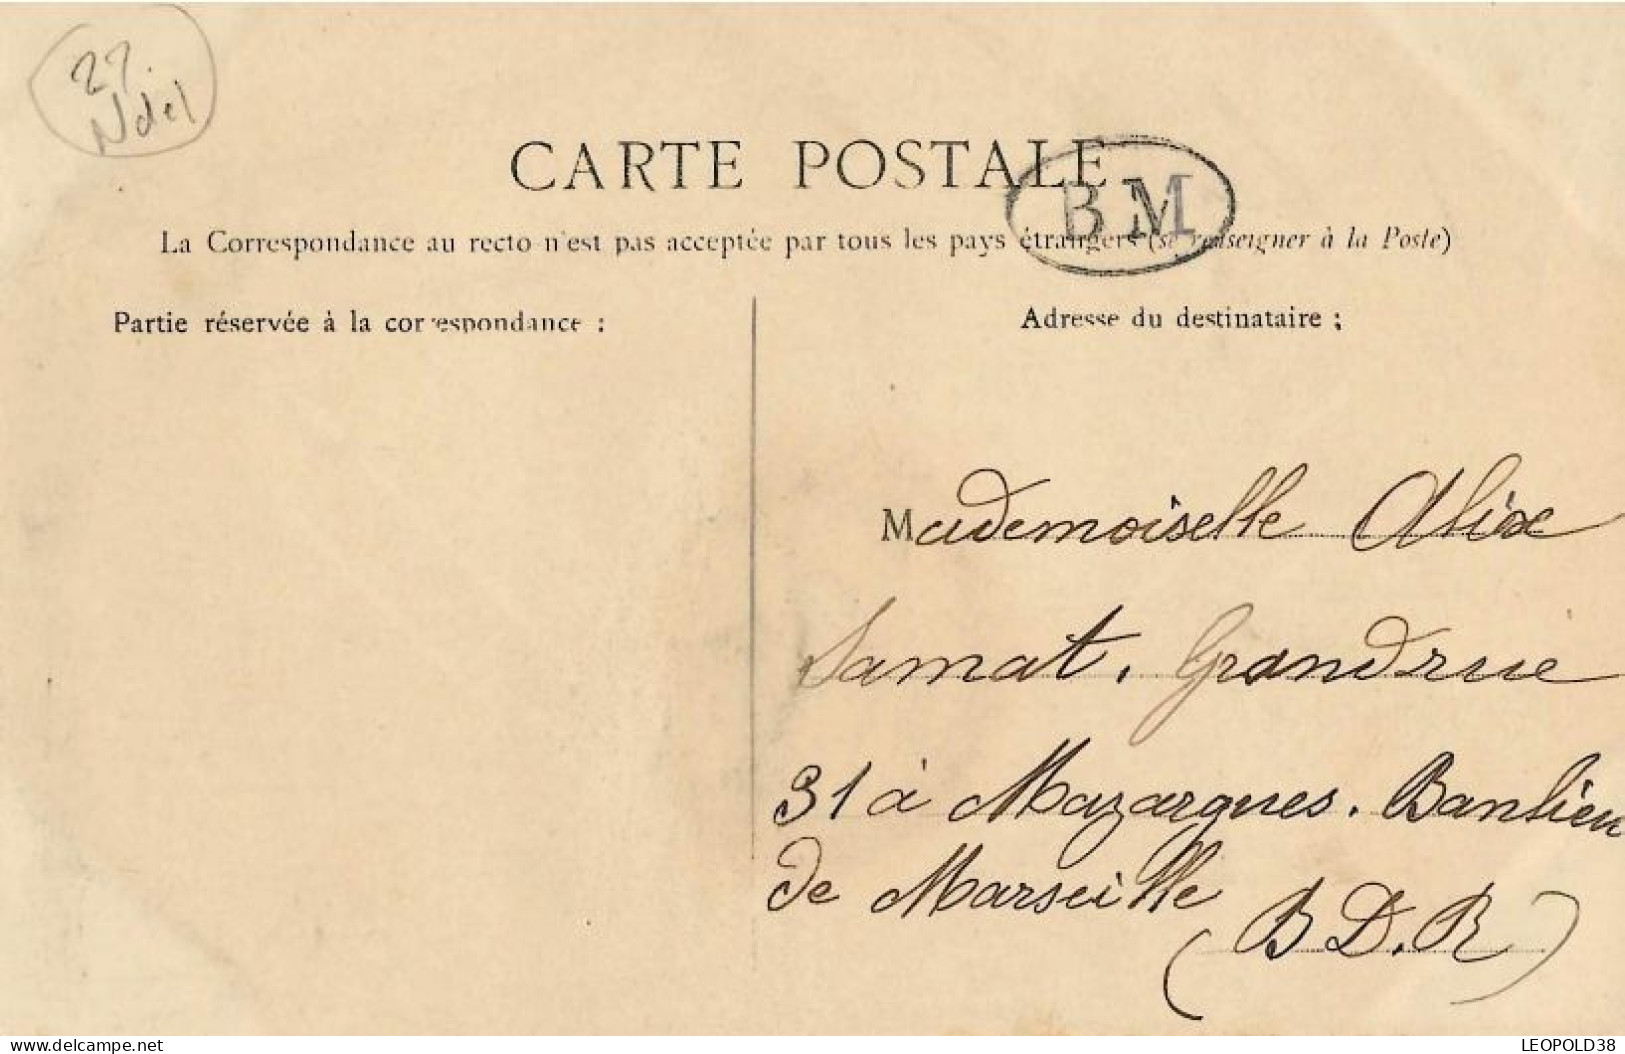 27.
Ndel
CARTE POSTALE
BM
La Correspondance au recto n'est pas acceptée par tous les pays étrangers (se renseigner à la Poste)
Partie réservée à la correspondance :
Adresse du destinataire ;
Mademoiselle Alix
Samat. Grandrue
31 à Mazargues. Banlieu
de Marseille
(B D.R)
https://www.delcampe.net
LEOPOLD38